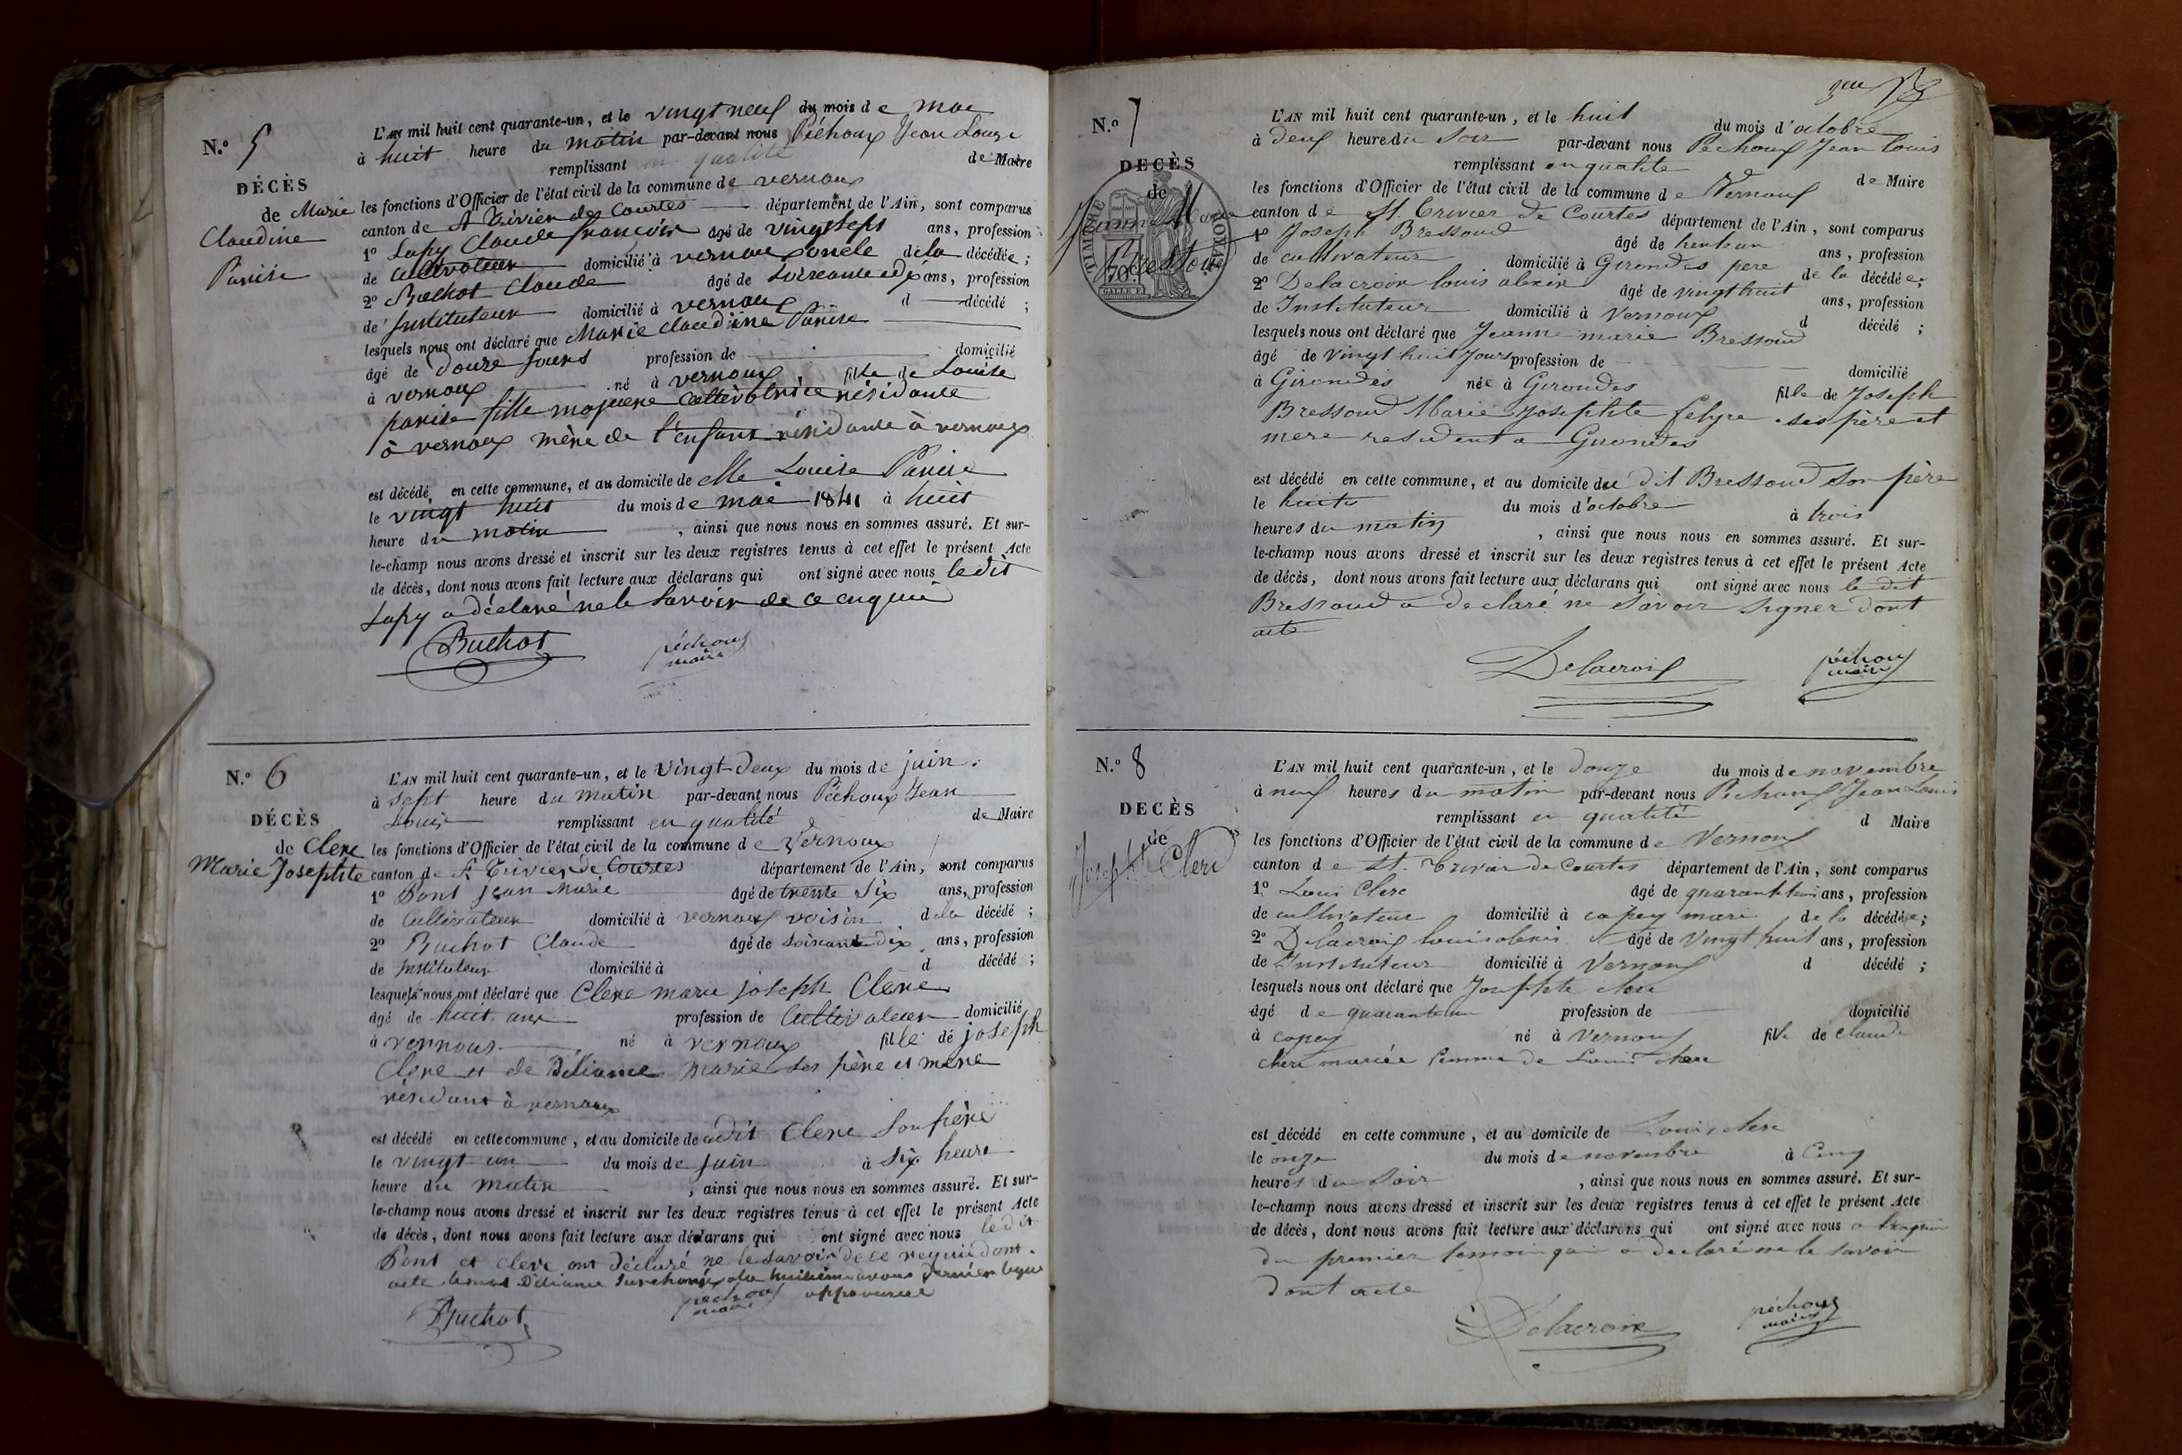 N.o 5
DÉCÈS
de Marie
Claudine
Parise
L'AN mil huit cent quarante-un, et le vingt neuf du mois de mai
à huit heure du matin par-devant nous Péchoux Jean Louis
remplissant en qualité de Maire
les fonctions d'Officier de l'état civil de la commune de vernoux
canton de St Trivier de Courtes département de l'Ain, sont comparus
1o Lapy Claude françois âgé de vingt sept ans, profession
de Cultivateur domicilié à vernoux oncle de la décédée ;
2o Buchot Claude âgé de soixante dix ans, profession
de Instituteur domicilié à vernoux d décédé ;
lesquels nous ont déclaré que Marie Claudine Parise
âgé de douze jours profession de domicilié
à vernoux né à vernoux fille de Louise
parise fille majeure cultivatrice résidante
à vernoux mère de l'enfant résidante à vernoux
est décédé en cette commune, et au domicile de elle Louise Parise
le vingt huit du mois de mai 1841 à huit
heure du matin , ainsi que nous nous en sommes assuré. Et sur-
le-champ nous avons dressé et inscrit sur les deux registres tenus à cet effet le présent Acte
de décès, dont nous avons fait lecture aux déclarans qui ont signé avec nous le dit
Lapy a déclaré ne le savoir de ce enquis
Buchot péchoux
maire
N.o 6
DÉCÈS
de Clerc
Marie Josephte
L'AN mil huit cent quarante-un, et le vingt-deux du mois de juin
à sept heure du matin par-devant nous Péchoux Jean
Louis remplissant en qualité de Maire
les fonctions d'Officier de l'état civil de la commune de Vernoux
canton de St Trivier de Courtes département de l'Ain, sont comparus
1o Pont Jean Marie âgé de trente six ans, profession
de Cultivateur domicilié à vernoux voisin de la décédé ;
2o Buchot Claude âgé de soixante dix ans, profession
de Instituteur domicilié à d décédé ;
lesquels nous ont déclaré que Clerc marie joseph Clerc
âgé de huit ans profession de Cultivateur domicilié
à vernoux né à vernoux fille de joseph
Clerc et de Déliance marie ses père et mère
résidant à vernoux
est décédé en cette commune, et au domicile de udit Clerc son père
le vingt un du mois de juin à six heure
heure du matin , ainsi que nous nous en sommes assuré. Et sur-
le-champ nous avons dressé et inscrit sur les deux registres tenus à cet effet le présent Acte
de décès, dont nous avons fait lecture aux déclarans qui ont signé avec nous le dit
Pont et Clerc ont déclaré ne le savoir de ce requis dont
acte Déliance surchargé a la avant dernier ligne
approuvée
Buchot péchoux
maire
N.o 7
DECÈS
de
Jeanne Marie
Bressoud
TIMBRE ROYAL
70c
L'AN mil huit cent quarante-un, et le huit du mois d'octobre
à deux heure du soir par-devant nous Pechoux Jean Louis
remplissant en qualité de Maire
les fonctions d'Officier de l'état civil de la commune de Vernoux
canton de St. Trivier de Courtes département de l'Ain, sont comparus
1o Joseph Bressoud âgé de trente un ans, profession
de cultivateur domicilié à Girondes pere de la décédée ;
2o Delacroix louis alexis âgé de vingt huit ans, profession
de Instituteur domicilié à Vernoux d décédé ;
lesquels nous ont déclaré que Jeanne marie Bressoud
âgé de vingt huit jours profession de domicilié
à Girondes née à Girondes fille de Joseph
Bressoud Marie Josephte ses père et
mere resident a Girondes
est décédé en cette commune, et au domicile du dit Bressoud son père
le huit du mois d'octobre à trois
heures du matin , ainsi que nous nous en sommes assuré. Et sur-
le-champ nous avons dressé et inscrit sur les deux registres tenus à cet effet le présent Acte
de décès, dont nous avons fait lecture aux déclarans qui ont signé avec nous le dit
Bressoud a declaré ne savoir signer dont
acte
Delacroix péchoux
maire
N.o 8
DECÈS
de
Josephte Clerc
L'AN mil huit cent quarante-un, et le douze du mois de novembre
à neuf heures du matin par-devant nous Pechoux Jean Louis
remplissant en qualité d Maire
les fonctions d'Officier de l'état civil de la commune de Vernoux
canton de St. Trivier de Courtes département de l'Ain, sont comparus
1o Louis Clerc âgé de quarante ans, profession
de cultivateur domicilié à copey mari de la décédée ;
2o Delacroix louis alexis âgé de vingt huit ans, profession
de Instituteur domicilié à Vernoux d décédé ;
lesquels nous ont déclaré que Josephte clerc
âgé de quarante un profession de domicilié
à copey né à Vernoux fille de claude
clerc mariée femme de Louis clerc
est décédé en cette commune, et au domicile de Louis clerc
le onze du mois de novembre à Cinq
heures du soir , ainsi que nous nous en sommes assuré. Et sur-
le-champ nous avons dressé et inscrit sur les deux registres tenus à cet effet le présent Acte
de décès, dont nous avons fait lecture aux déclarans qui ont signé avec nous
du premier temoin qui a declaré ne le savoir
dont acte
Delacroix péchoux
maire